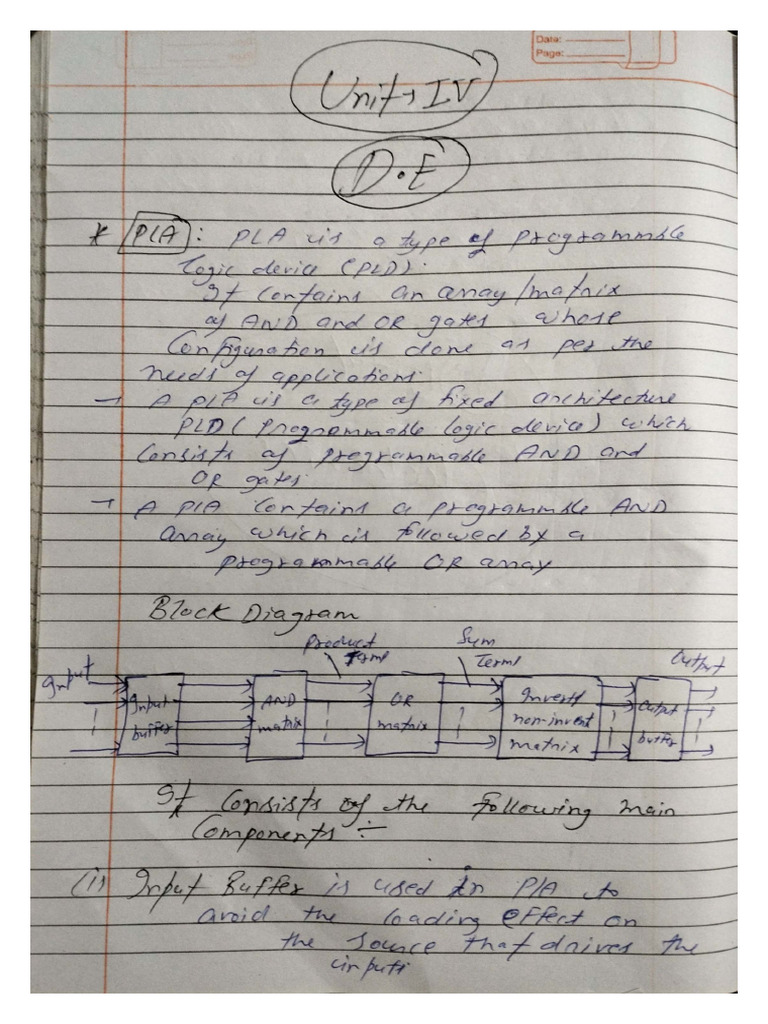 Date:
Page:
Unit → IV
D.E
* PLA : PLA is a type of programmable
logic device (PLD).
It contains an array/matrix
of AND and OR gates whose
Configuration is done as per the
needs of applications.
→ A PLA is a type of fixed architecture
PLD (Programmable logic device) which
consists of programmable AND and
OR gates.
→ A PLA contains a programmable AND
array which is followed by a
programmable OR array
Block Diagram
Product Terms
Sum Terms
Output
Input
Input buffer
AND matrix
OR matrix
Invert/ non-invent matrix
Output buffer
It Consists of the following main
Components :-
(i) Input Buffer is used in PLA to
avoid the loading effect on
the source that drives the
inputs